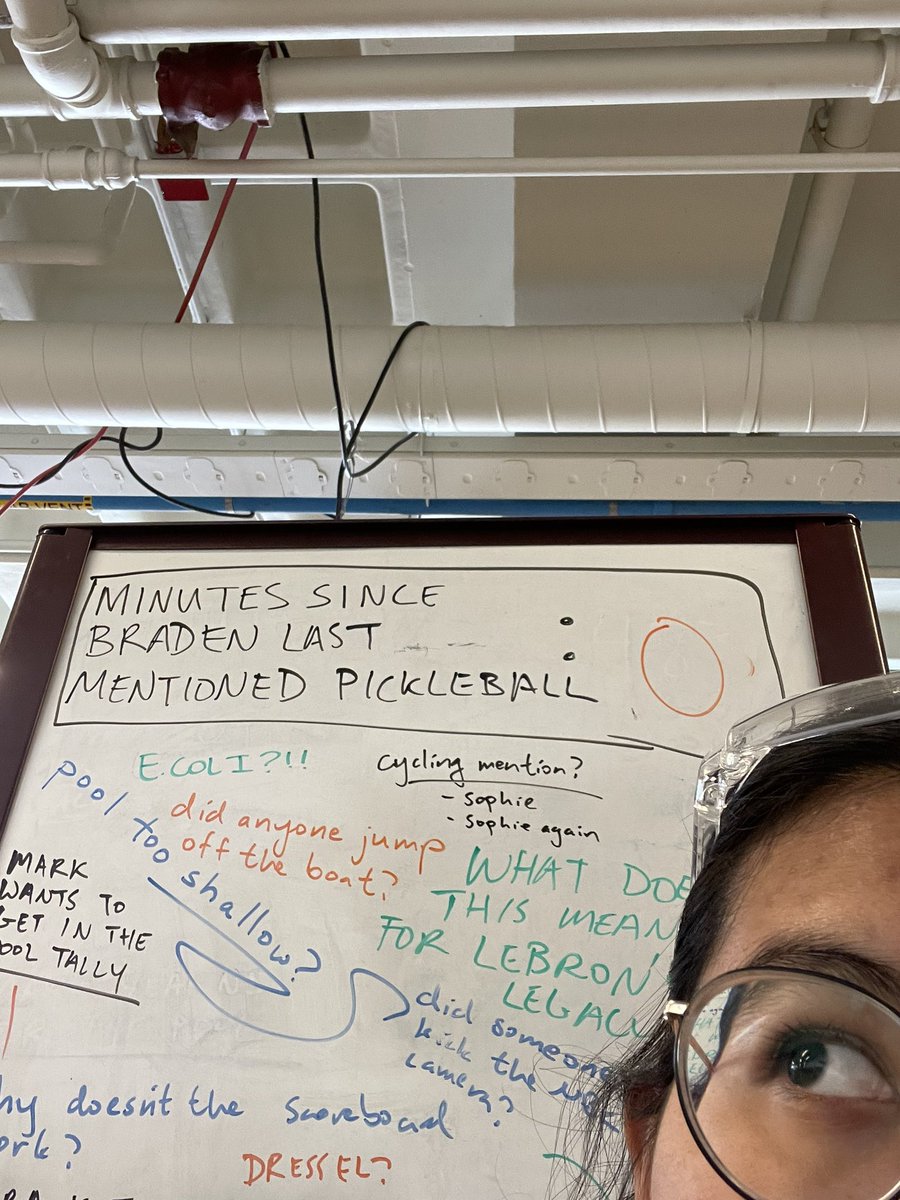 MINUTES SINCE
BRADEN LAST
MENTIONED PICKLEBALL
:
E.COLI?!!
cycling mention?
- Sophie
- Sophie again
pool too shallow?
did anyone jump
off the boat?
WHAT DOE
THIS MEAN
FOR LEBRON'
LEGAC
MARK
WANTS TO
GET IN THE
OOL TALLY
did someone
kick the
camera?
hy doesn't the scoreboard
ork?
DRESSEL?
VENT